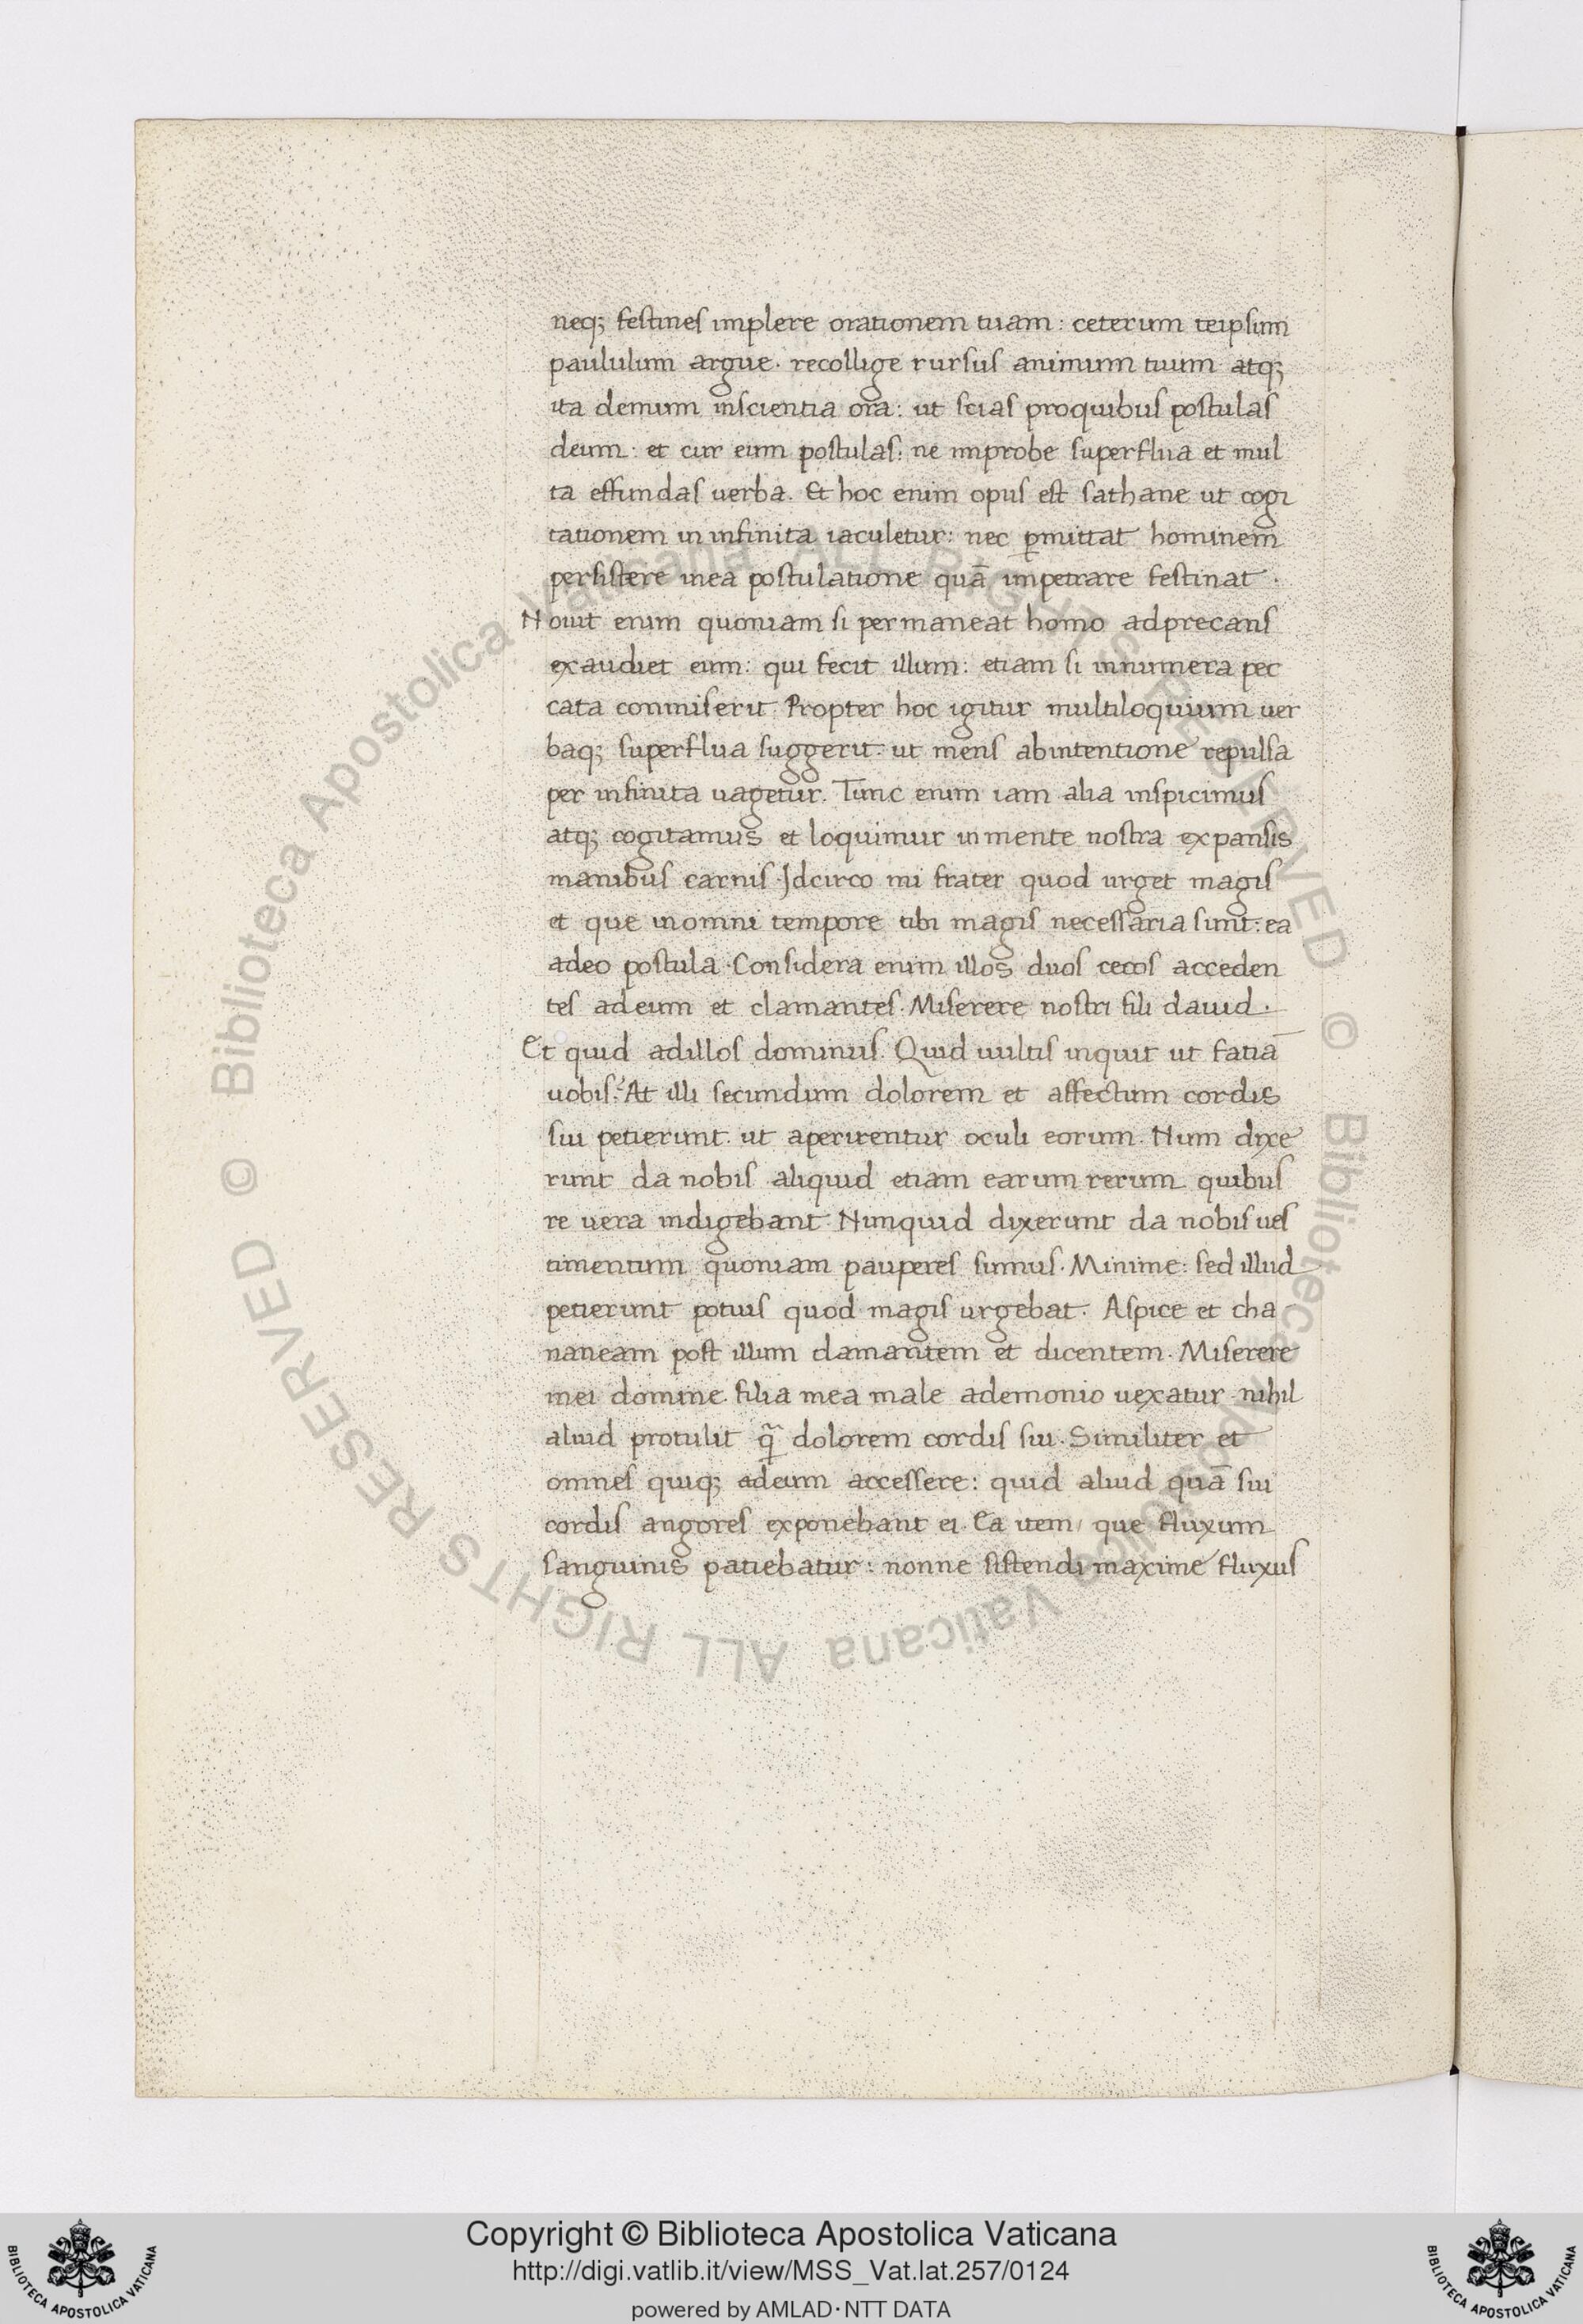 neq; festines implere orationem tuam: ceterum teipsum
paululum argue. recollige rursus animum tuum atq;
ita demum inscientia ora: ut scias proquibus postulas
deum: et cur eum postulas: ne improbe superflua et mul
ta effundas uerba. Et hoc enim opus est sathane ut cogi
tationem in infinita iaculetur: nec ꝑmittat hominem
persistere inea postulatione quā impetrare festinat.
Nouit enim quoniam si permaneat homo adprecans
exaudiet eum: qui fecit illum: etiam si innumera pec
cata conmiserit. Propter hoc igitur multiloquium uer
baq; superflua suggerit: ut mens abintentione repulsa
per infinita uagetur. Tunc enim iam alia inspicimus
atq; cogitamus et loquimur inmente nostra expansis
manibus carnis. Idcirco mi frater quod urget magis
et que inomni tempore tibi magis necessaria sunt: ea
adeo postula. Considera enim illos duos cecos acceden
tes adeum et clamantes. Miserere nostri fili dauid.
Et quid adillos dominus. Quid uultis inquit ut fatiā
uobis? At illi secundum dolorem et affectum cordis
sui petierunt. ut aperirentur oculi eorum. Num dixe
runt da nobis aliquid etiam earum rerum quibus
re uera indigebant. Nunquid dixerunt da nobis ues
timentum quoniam pauperes sumus. Minime: sed illud
petierunt potius quod magis urgebat. Aspice et cha
naneam post illum clamantem et dicentem. Miserere
mei domine. filia mea male ademonio uexatur. nihil
aliud protulit q̄ dolorem cordis sui. Similiter et
omnes quiq; adeum accessere: quid aliud quā sui
cordis angores exponebant ei. Ea item, que fluxum
sanguinis patiebatur: nonne sistendi maxime fluxus
Copyright © Biblioteca Apostolica Vaticana
http://digi.vatlib.it/view/MSS_Vat.lat.257/0124
powered by AMLAD·NTT DATA
BIBLIOTECA APOSTOLICA VATICANA
BIBLIOTECA APOSTOLICA VATICANA
© Biblioteca Apostolica Vaticana ALL RIGHTS RESERVED
© Biblioteca Apostolica Vaticana ALL RIGHTS RESERVED